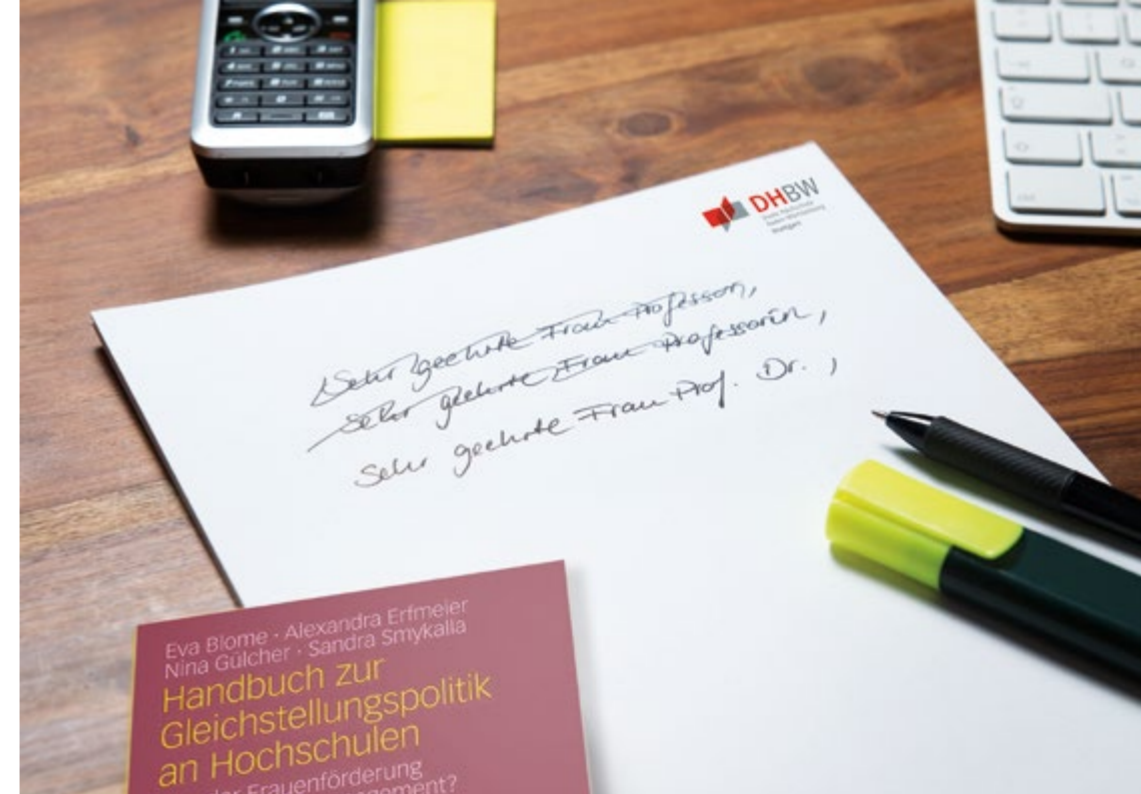 DHBW
Duale Hochschule
Baden-Württemberg
Stuttgart
Sehr geehrte Frau Professor,
Sehr geehrte Frau Professorin,
Sehr geehrte Frau Prof. Dr. ,
Eva Blome · Alexandra Erfmeier
Nina Gülcher · Sandra Smykalla
Handbuch zur
Gleichstellungspolitik
an Hochschulen
Frauenförderung